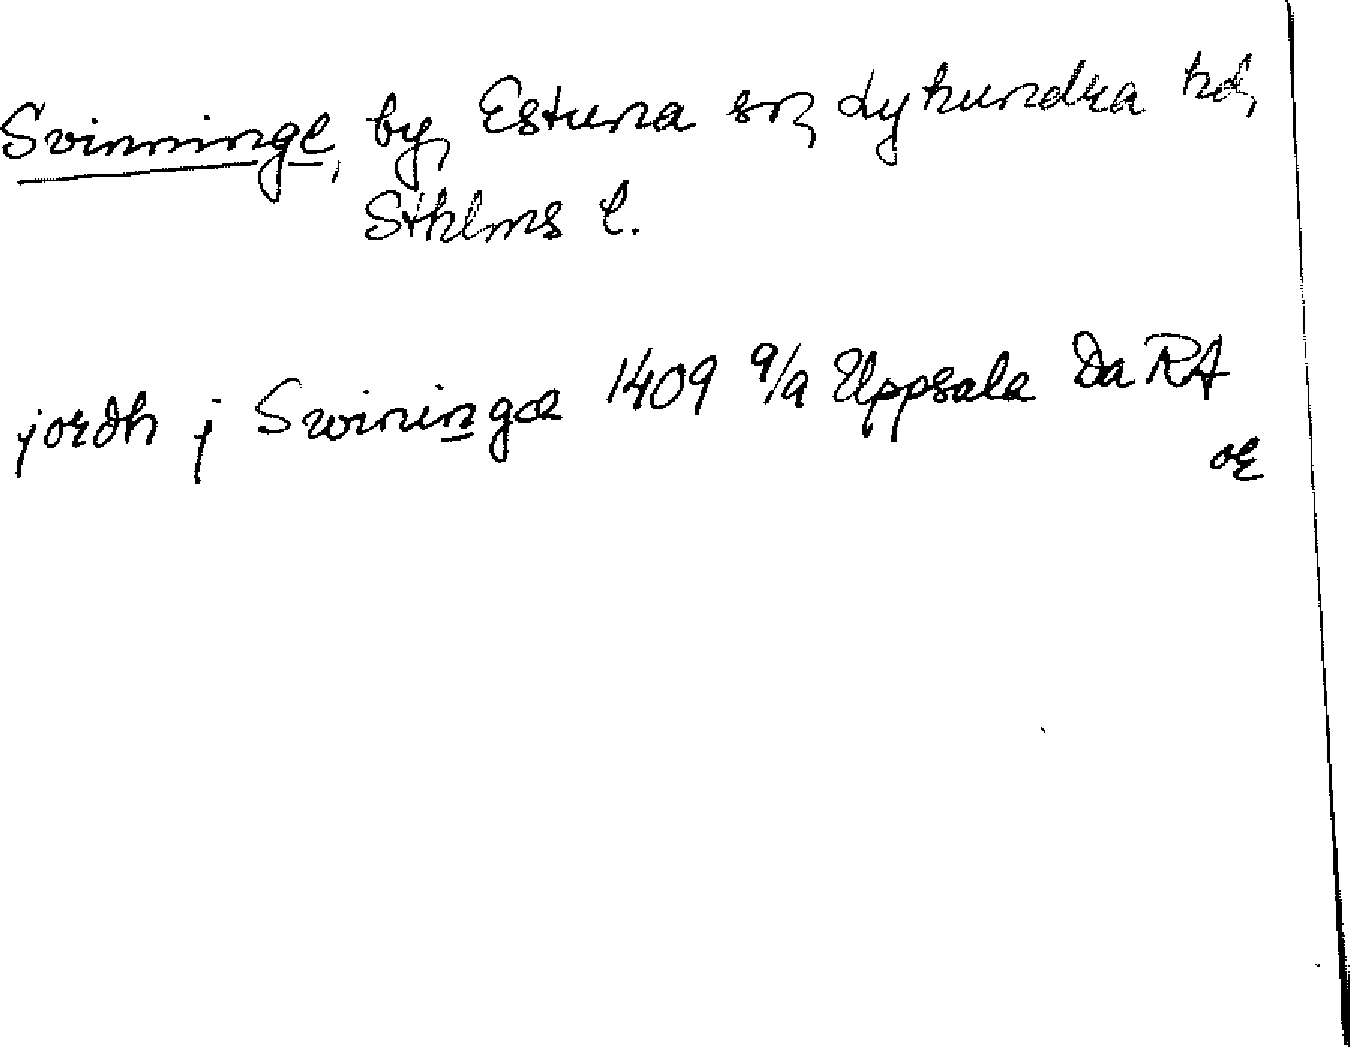 Svinninge, by, Estuna sn, Lyhundra hd,
Sthlms l.
jordh j Swiningæ 1409 9/9 Uppsala Da RA
OE